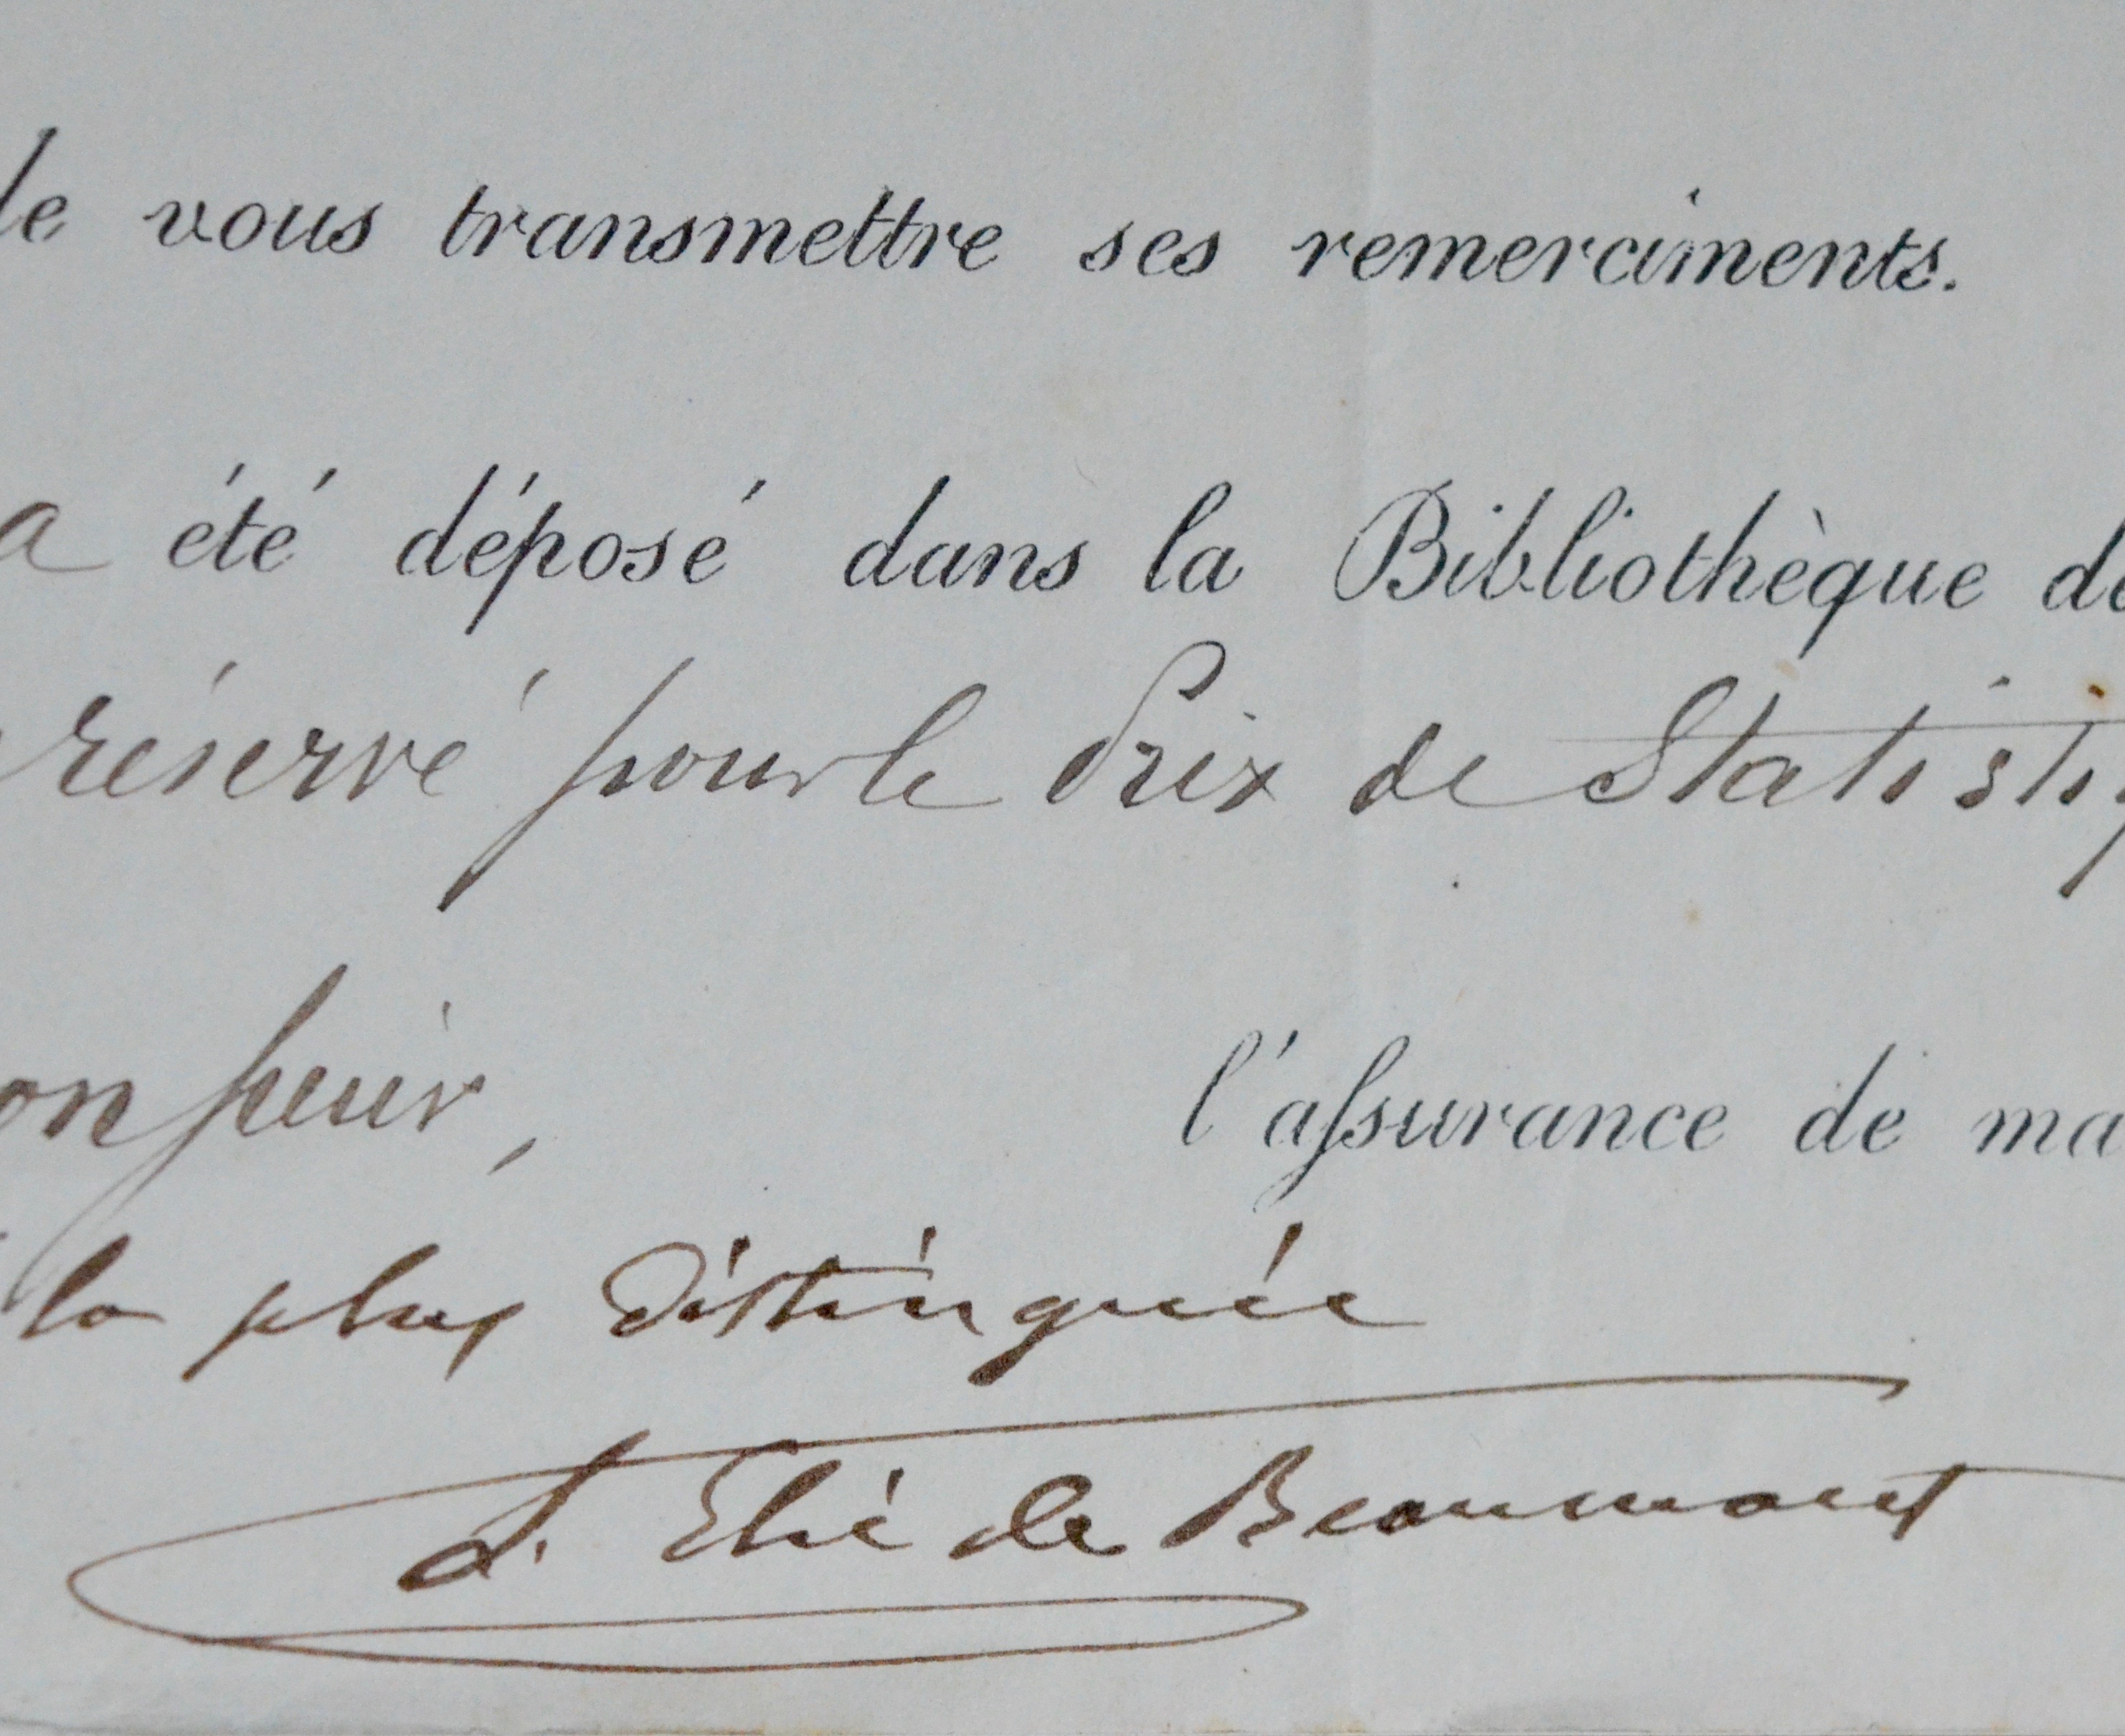 de vous transmettre ses remerciments.
a été déposé dans la Bibliothèque de
réservé pour le Prix de Statistiq
l'assurance de ma
la plus distinguée
L. Elie de Beaumont